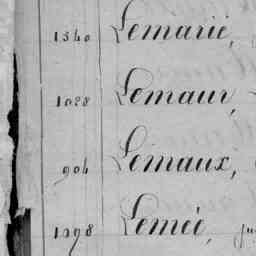 1340 Lemarié,
1028 Lemaur,
904 Lemaux,
1098 Lemée,